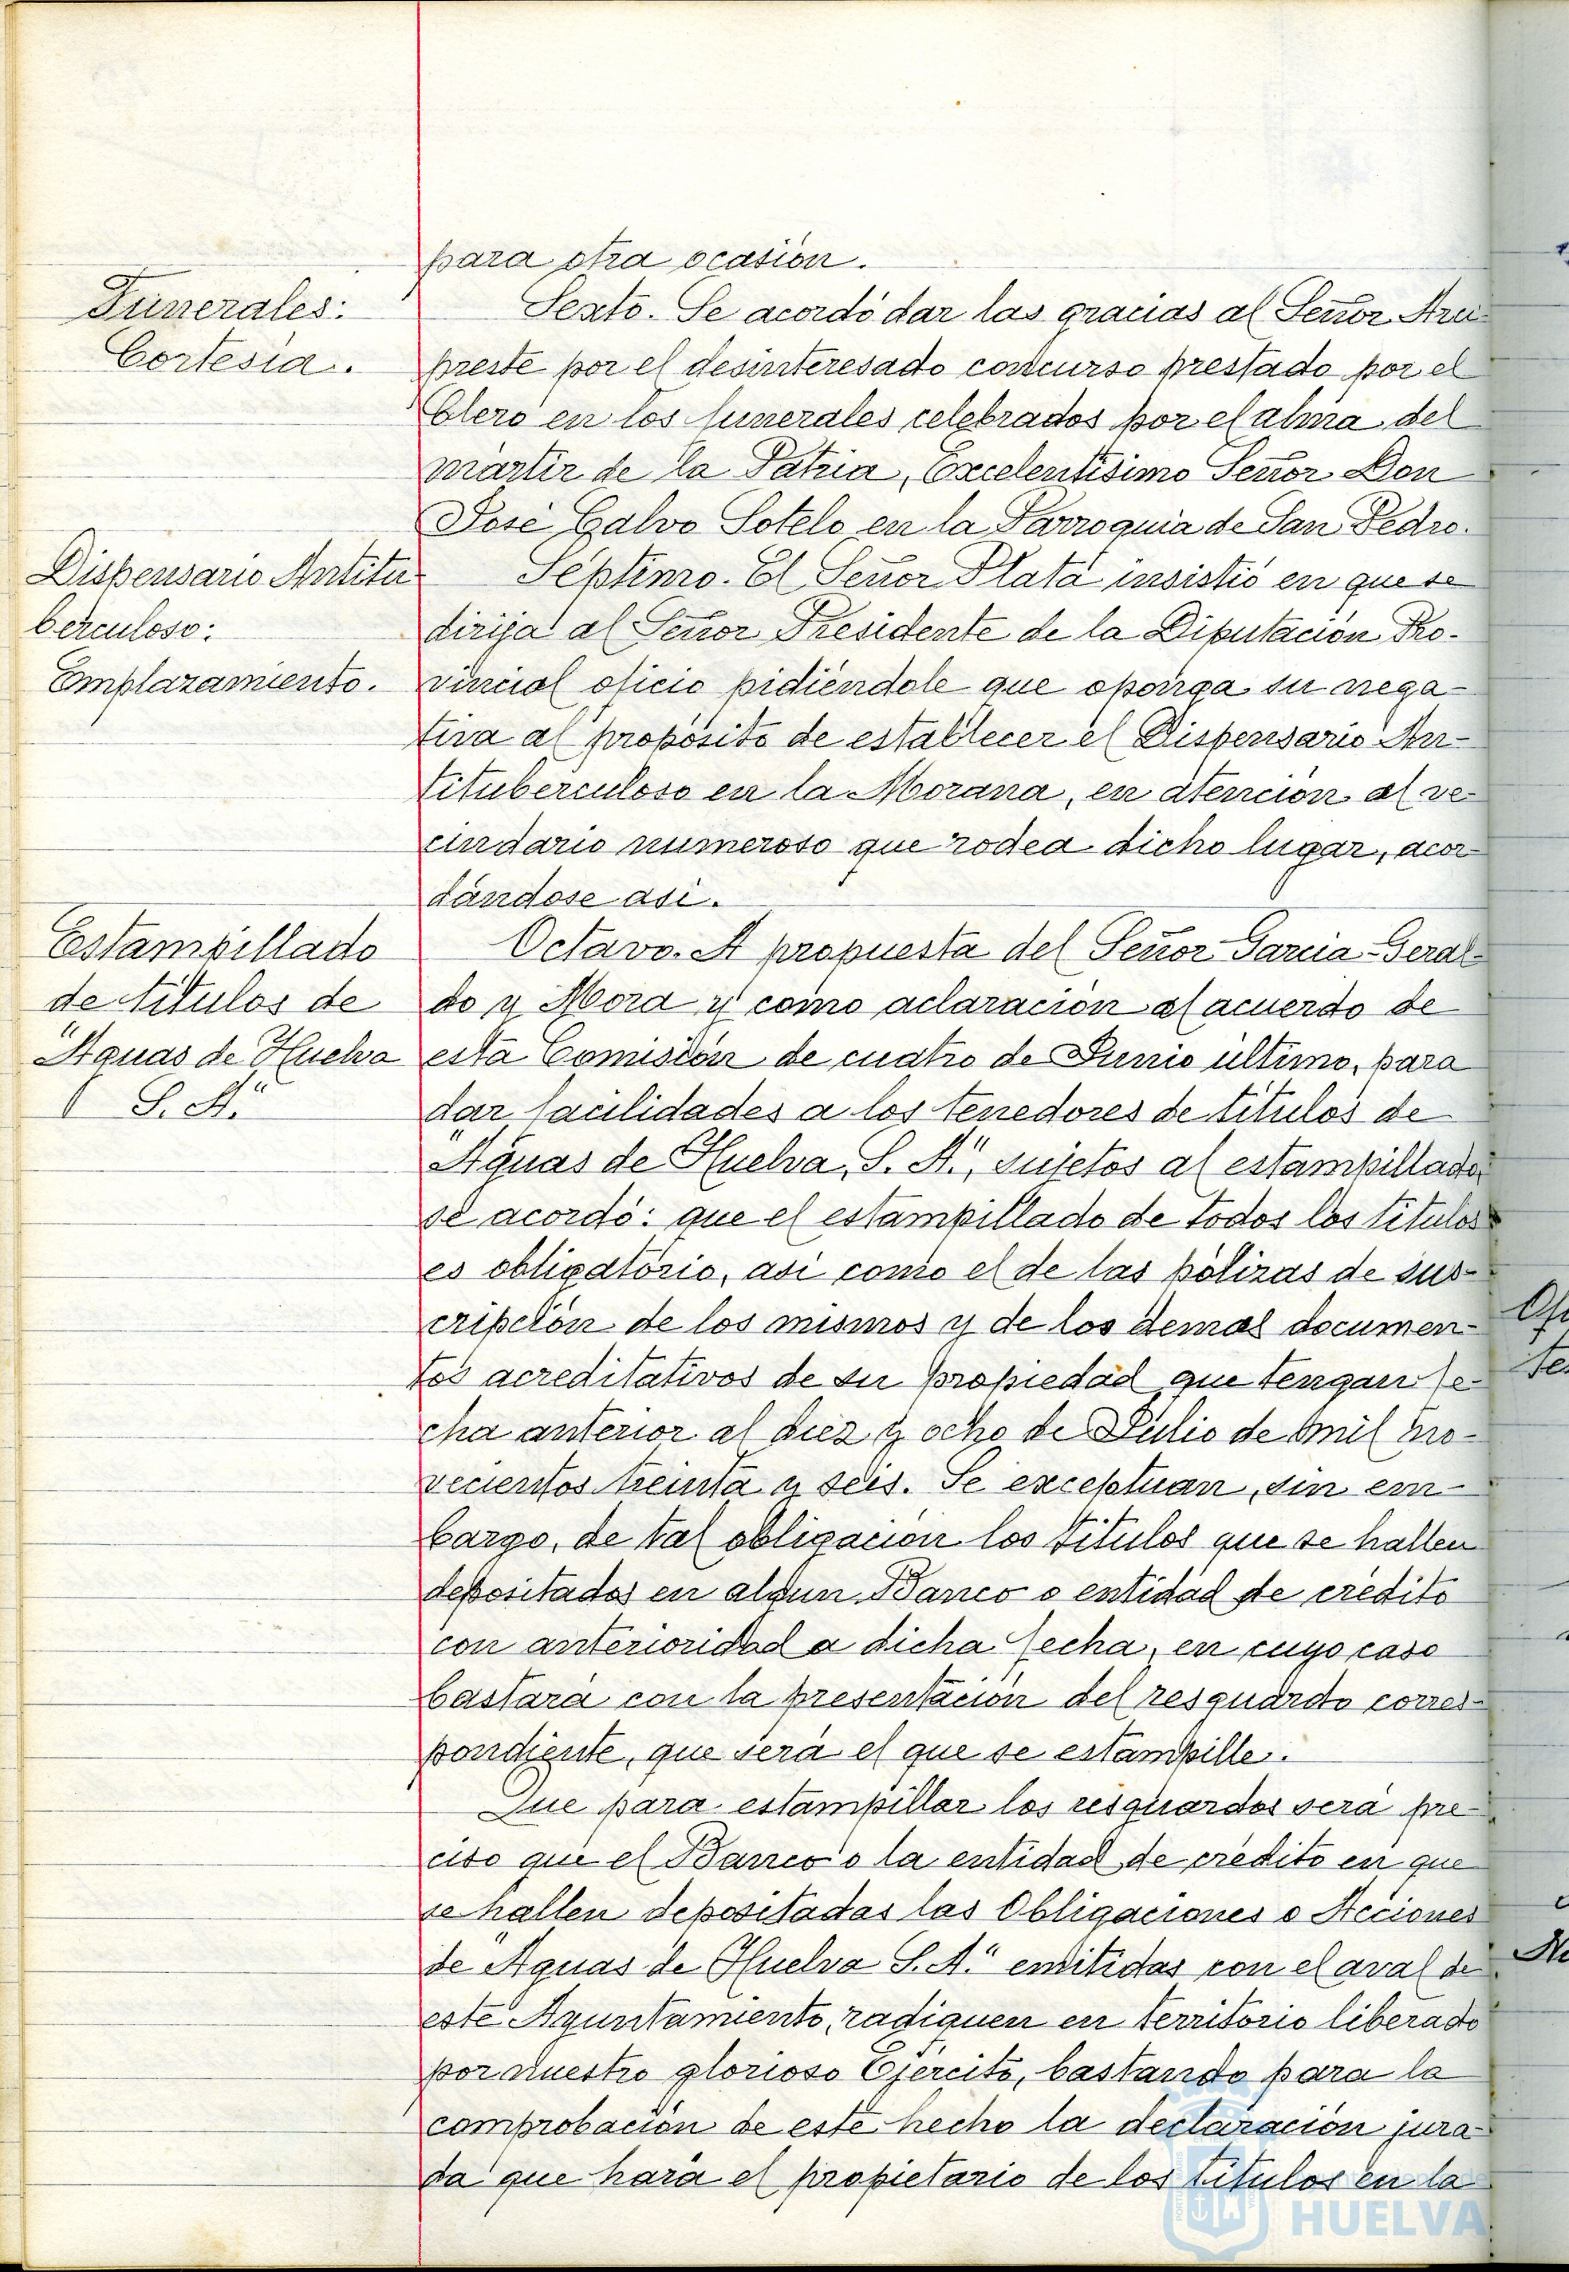 para otra ocasión.
Funerales:
Cortesía.
Sexto. Se acordó dar las gracias al Señor Arci-
preste por el desinteresado concurso prestado por el
Clero en los funerales celebrados por el alma del
mártir de la Patria, Excelentísimo Señor Don
José Calvo Sotelo en la Parroquia de San Pedro.
Dispensario Antitu
berculoso:
Emplazamiento.
Séptimo. El Señor Plata insistió en que se
dirija al Señor Presidente de la Diputación Pro-
vincial oficio pidiéndole que oponga su nega-
tiva al propósito de establecer el Dispensario An-
tituberculoso en la Morana, en atención al ve-
cindario numeroso que rodea dicho lugar, acor-
dándose así.
Estampillado
de títulos de
"Aguas de Huelva
S. A."
Octavo. A propuesta del Señor García-Geral-
do y Mora y como aclaración al acuerdo de
esta Comisión de cuatro de Junio último, para
dar facilidades a los tenedores de títulos de
"Aguas de Huelva, S. A.", sujetos al estampillado,
se acordó: que el estampillado de todos los títulos
es obligatorio, así como el de las pólizas de sus-
cripción de los mismos y de los demás documen-
tos acreditativos de su propiedad que tengan fe-
cha anterior al diez y ocho de Julio de mil no-
vecientos treinta y seis. Se exceptuan, sin em-
bargo, de tal obligación los títulos que se hallen
depositados en algun Banco o entidad de crédito
con anterioridad a dicha fecha, en cuyo caso
bastará con la presentación del resguardo corres-
pondiente, que será el que se estampille.
Que para estampillar los resguardos será pre-
ciso que el Banco o la entidad de crédito en que
se hallen depositadas las Obligaciones o Acciones
de "Aguas de Huelva S. A." emitidas con el aval de
este Ayuntamiento, radiquen en territorio liberado
por nuestro glorioso Ejército, bastando para la
comprobación de este hecho la declaración jura-
da que hará el propietario de los títulos en la
HUELVA